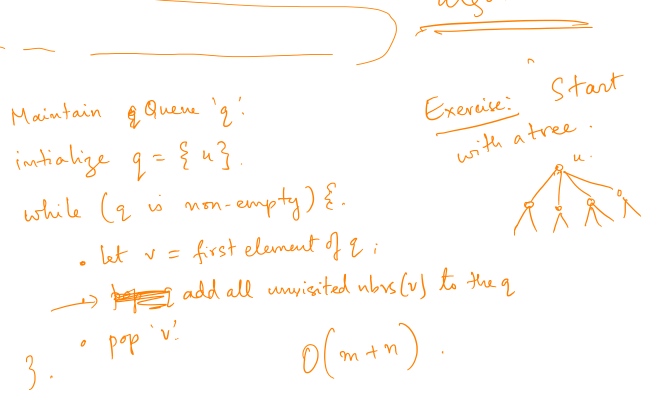 Maintain a Queue 'q'.
intialize q = { u }.
while (q is non-empty) {.
• let v = first element of q ;
→ add all unvisited nbrs(v) to the q
• pop 'v'.
}.
O(m+n) .
Exercise: Start
with a tree .
u.